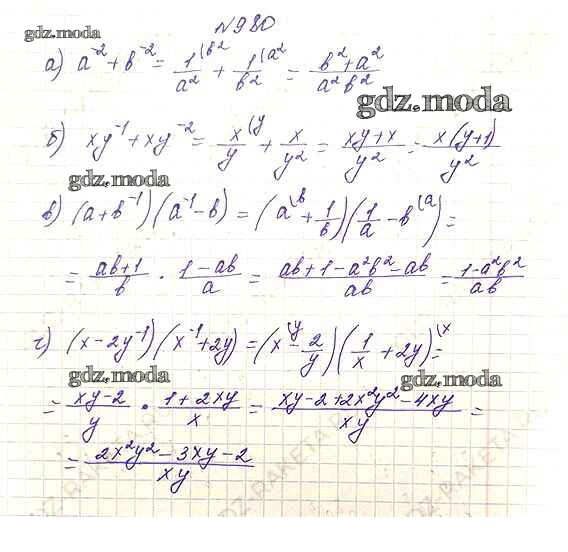 №980
gdz.moda
а) a⁻² + b⁻² = 1/a² (b² + 1/b² (a² = (b²+a²)/(a²b²)
gdz.moda
б) xy⁻¹ + xy⁻² = x/y (y + x/y² = (xy+x)/y² = x(y+1)/y²
gdz.moda
в) (a+b⁻¹)(a⁻¹-b) = (a (b + 1/b)(1/a - b (a) =
= (ab+1)/b · (1-ab)/a = (ab+1-a²b²-ab)/(ab) = (1-a²b²)/(ab)
г) (x-2y⁻¹)(x⁻¹+2y) = (x (y - 2/y)(1/x + 2y) (x =
gdz.moda gdz.moda
= (xy-2)/y · (1+2xy)/x = (xy-2+2x²y²-4xy)/(xy) =
= (2x²y²-3xy-2)/(xy)
GDZ-RAKETA